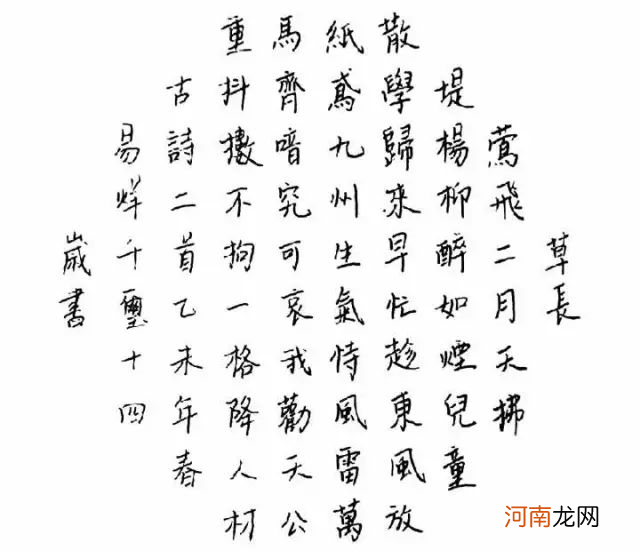 草長
鶯飛二月天拂
堤楊柳醉如煙兒童
散學歸來早忙趁東風放
紙鳶九州生氣恃風雷萬
馬齊喑究可哀我勸天公
重抖擻不拘一格降人材
古詩二首乙未年春
易烊千璽十四
歲書
河南龙网